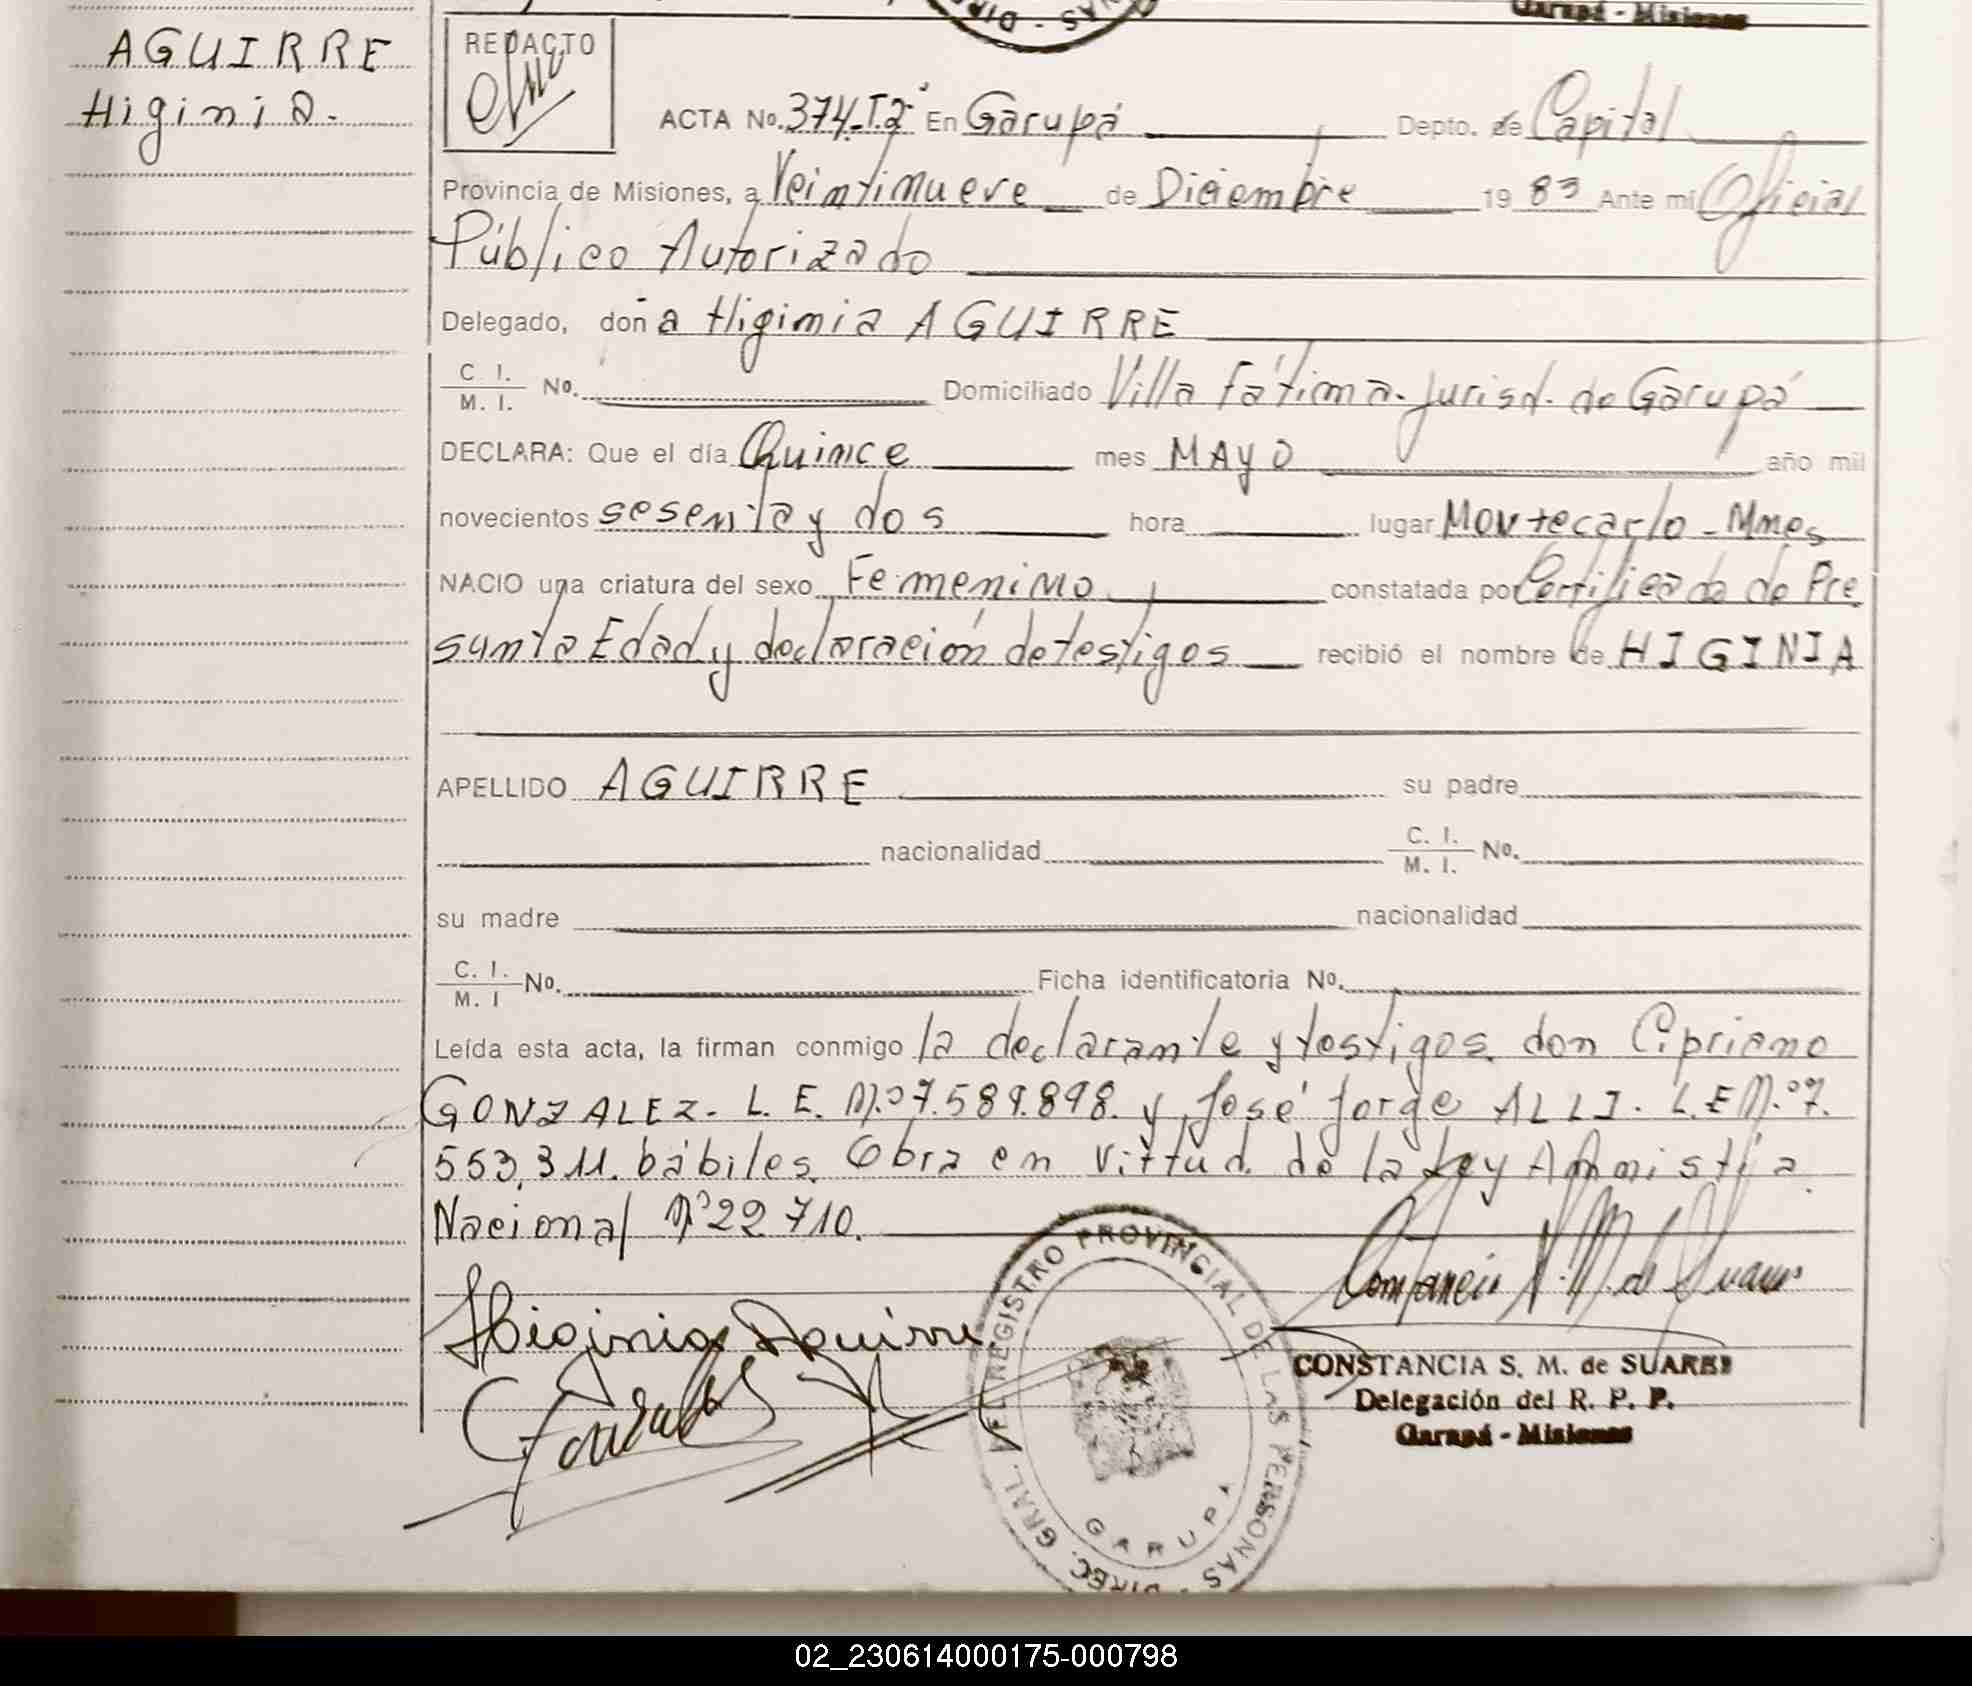 Garupá - Misiones
AGUIRRE
Higinia.
REDACTO
ACTA No. 374-T.2° En Garupá Depto. de Capital
Provincia de Misiones, a Veintinueve de Diciembre 19 83 Ante mí Oficial
Público Autorizado
Delegado, doña Higinia AGUIRRE
C I. M. I. No. Domiciliado Villa Fátima. Jurisd. de Garupá
DECLARA: Que el día Quince mes MAYO año mil
novecientos sesenta y dos hora lugar Montecarlo - Mnes
NACIO una criatura del sexo Femenino constatada por Certificado de Pre
sunta Edad y declaración de testigos recibió el nombre de HIGINIA
APELLIDO AGUIRRE su padre
nacionalidad C. I. M. I. No.
su madre nacionalidad
C. I. M. I No. Ficha identificatoria No.
Leída esta acta, la firman conmigo la declarante y testigos don Cipriano
GONZALEZ. L. E. N.º 7.589.898. y José Jorge ALLI. L.E N.º 7.
553.311. hábiles. Obra en virtud de la Ley Amnistía
Nacional Nº 22 710.
Higinia Aguirre
CONSTANCIA S. M. de SUAREZ
Delegación del R. P. P.
Garupá - Misiones
DIREC. GRAL. DEL REGISTRO PROVINCIAL DE LAS PERSONAS
GARUPA
02_230614000175-000798